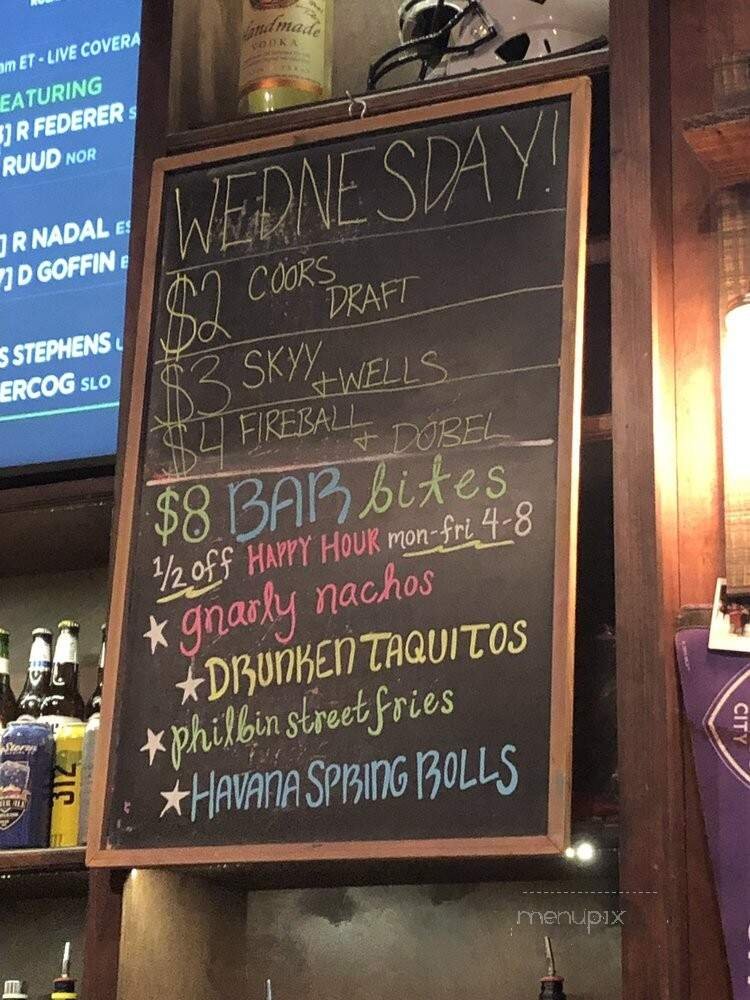 am ET - LIVE COVERA
EATURING
] R FEDERER S
RUUD NOR
] R NADAL ES
7] D GOFFIN
S STEPHENS
ERCOG SLO
Handmade
VODKA
WEDNESDAY!
$2 COORS DRAFT
$3 SKYY + WELLS
$4 FIREBALL + DOBEL
$8 BAR bites
1/2 off HAPPY HOUR mon-fri 4-8
gnarly nachos
DRUNKEN TAQUITOS
philbin street fries
HAVANA SPRING ROLLS
312
CITY
menupix